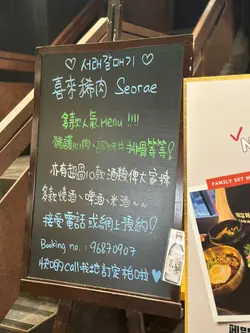 ♡ 서래갈매기 ♡
喜來稀肉 Seorae
多款人氣 Menu !!!!
亦有超過10款酒類俾大家揀
多款燒酒、啤酒、米酒~~
接受電話或網上預約!
Booking no. : 96870907
快啲call我地訂定枱啦♥
FAMILY SET M